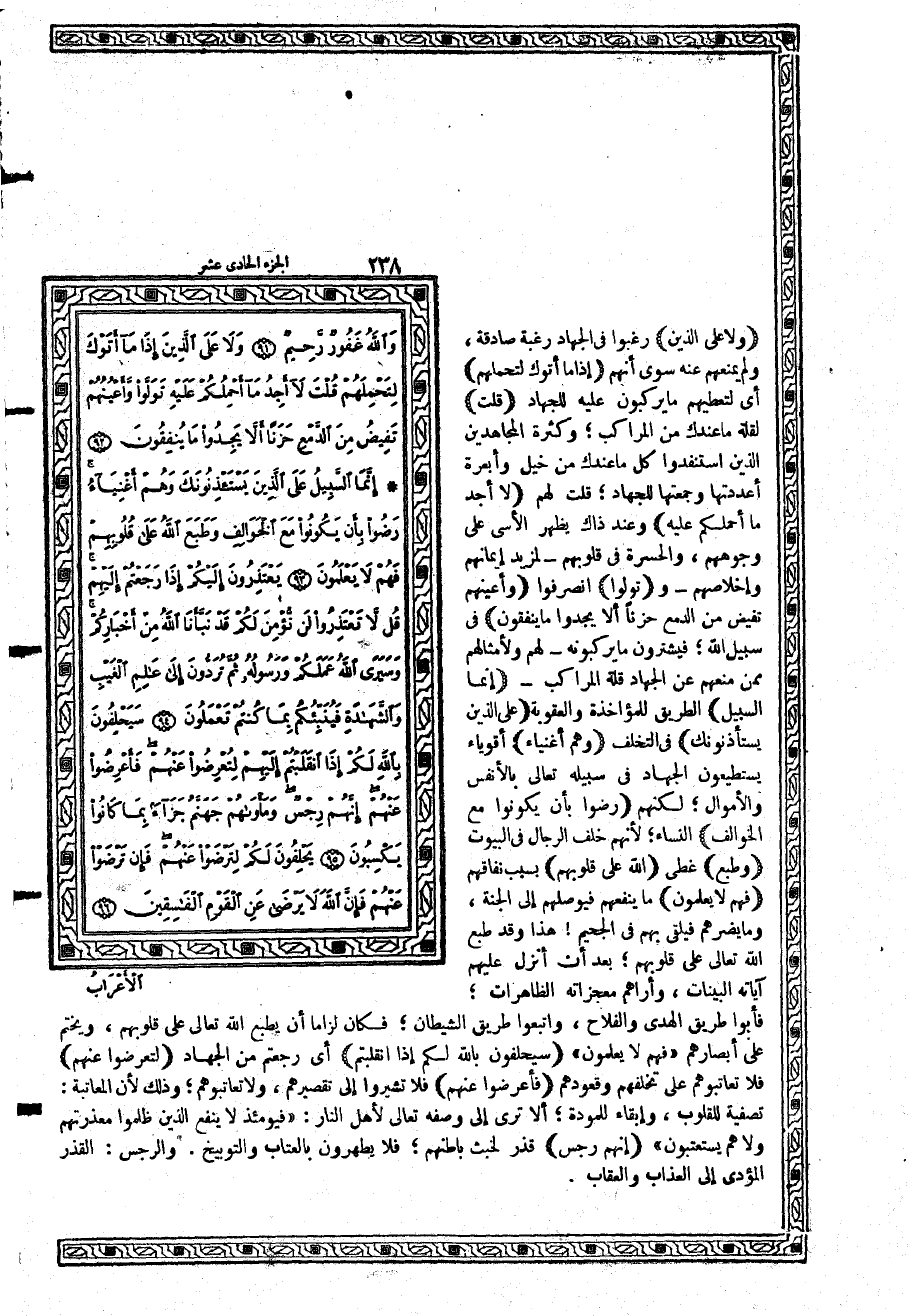 ٢٣٨ الجزء الحادى عشر
وَٱللَّهُ غَفُورٌ رَّحِيمٌ ٩١ وَلَا عَلَى ٱلَّذِينَ إِذَا مَآ أَتَوْكَ
لِتَحْمِلَهُمْ قُلْتَ لَآ أَجِدُ مَآ أَحْمِلُكُمْ عَلَيْهِ تَوَلَّوا۟ وَّأَعْيُنُهُمْ
تَفِيضُ مِنَ ٱلدَّمْعِ حَزَنًا أَلَّا يَجِدُوا۟ مَا يُنفِقُونَ ٩٢
* إِنَّمَا ٱلسَّبِيلُ عَلَى ٱلَّذِينَ يَسْتَـْٔذِنُونَكَ وَهُمْ أَغْنِيَآءُ
رَضُوا۟ بِأَن يَكُونُوا۟ مَعَ ٱلْخَوَالِفِ وَطَبَعَ ٱللَّهُ عَلَىٰ قُلُوبِهِمْ
فَهُمْ لَا يَعْلَمُونَ ٩٣ يَعْتَذِرُونَ إِلَيْكُمْ إِذَا رَجَعْتُمْ إِلَيْهِمْ
قُل لَّا تَعْتَذِرُوا۟ لَن نُّؤْمِنَ لَكُمْ قَدْ نَبَّأَنَا ٱللَّهُ مِنْ أَخْبَارِكُمْ
وَسَيَرَى ٱللَّهُ عَمَلَكُمْ وَرَسُولُهُۥ ثُمَّ تُرَدُّونَ إِلَىٰ عَـٰلِمِ ٱلْغَيْبِ
وَٱلشَّهَـٰدَةِ فَيُنَبِّئُكُم بِمَا كُنتُمْ تَعْمَلُونَ ٩٤ سَيَحْلِفُونَ
بِٱللَّهِ لَكُمْ إِذَا ٱنقَلَبْتُمْ إِلَيْهِمْ لِتُعْرِضُوا۟ عَنْهُمْ ۖ فَأَعْرِضُوا۟
عَنْهُمْ ۖ إِنَّهُمْ رِجْسٌ ۖ وَمَأْوَىٰهُمْ جَهَنَّمُ جَزَآءًۢ بِمَا كَانُوا۟
يَكْسِبُونَ ٩٥ يَحْلِفُونَ لَكُمْ لِتَرْضَوْا۟ عَنْهُمْ ۖ فَإِن تَرْضَوْا۟
عَنْهُمْ فَإِنَّ ٱللَّهَ لَا يَرْضَىٰ عَنِ ٱلْقَوْمِ ٱلْفَـٰسِقِينَ ٩٦
ٱلْأَعْرَابُ
(ولا على الذين) رغبوا فى الجهاد رغبة صادقة ،
ولم يمنعهم عنه سوى أنهم (إذا ما أتوك لتحملهم)
أى لتعطيهم ما يركبون عليه للجهاد (قلت)
لقلة ماعندك من المراكب ؛ وكثرة المجاهدين
الذين استنفدوا كل ماعندك من خيل وأبعرة
أعددتها وجمعتها للجهاد ؛ قلت لهم (لا أجد
ما أحملكم عليه) وعند ذاك يظهر الأسى على
وجوههم ، والحسرة فى قلوبهم – لمزيد إيمانهم
وإخلاصهم – و (تولوا) انصرفوا (وأعينهم
تفيض من الدمع حزناً ألا يجدوا ماينفقون) فى
سبيل الله ؛ فيشترون مايركبونه – لهم ولأمثالهم
ممن منعهم عن الجهاد قلة المراكب – (إنما
السبيل) الطريق للمؤاخذة والعقوبة (على الذين
يستأذنونك) فى التخلف (وهم أغنياء) أقوياء
يستطيعون الجهاد فى سبيله تعالى بالأنفس
والأموال ؛ لكنهم (رضوا بأن يكونوا مع
الخوالف) النساء؛ لأنهم خلف الرجال فى البيوت
(وطبع) غطى (الله على قلوبهم) بسبب نفاقهم
(فهم لايعلمون) ما ينفعهم فيوصلهم إلى الجنة ،
ومايضرهم فيلقى بهم فى الجحيم ! هذا وقد طبع
الله تعالى على قلوبهم ؛ بعد أن أنزل عليهم
آياته البينات ، وأراهم معجزاته الظاهرات ؛
فأبوا طريق الهدى والفلاح ، واتبعوا طريق الشيطان ؛ فكان لزاما أن يطبع الله تعالى على قلوبهم ، ويختم
على أبصارهم «فهم لا يعلمون» (سيحلفون بالله لكم إذا انقلبتم) أى رجعتم من الجهاد (لتعرضوا عنهم)
فلا تعاتبوهم على تخلفهم وقعودهم (فأعرضوا عنهم) فلا تشيروا إلى تقصيرهم ، ولاتعاتبوهم ؛ وذلك لأن المعاتبة :
تصفية للقلوب ، وإبقاء للمودة ؛ ألا ترى إلى وصفه تعالى لأهل النار : «فيومئذ لا ينفع الذين ظلموا معذرتهم
ولا هم يستعتبون» (إنهم رجس) قذر لخبث باطنهم ؛ فلا يطهرون بالعتاب والتوبيخ . والرجس : القذر
المؤدى إلى العذاب والعقاب .